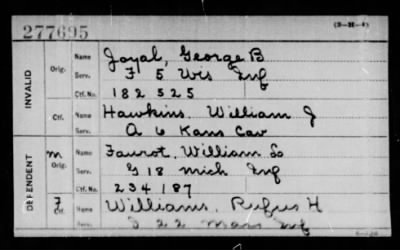 277695 (3-21-4)
INVALID
Orig. Name Joyal, George B
Serv. F 5 Wis Inf
Ctf. No. 182 525
Ctf. Name Hawkins. William J
Serv. A 6 Kans Cav
DEPENDENT
m Orig. Name Faurot, William Lo
Serv. G 18 Mich Inf
Ctf. No. 234 187
F Ctf. Name Williams, Rufus H
Serv. I 22 Mass Inf